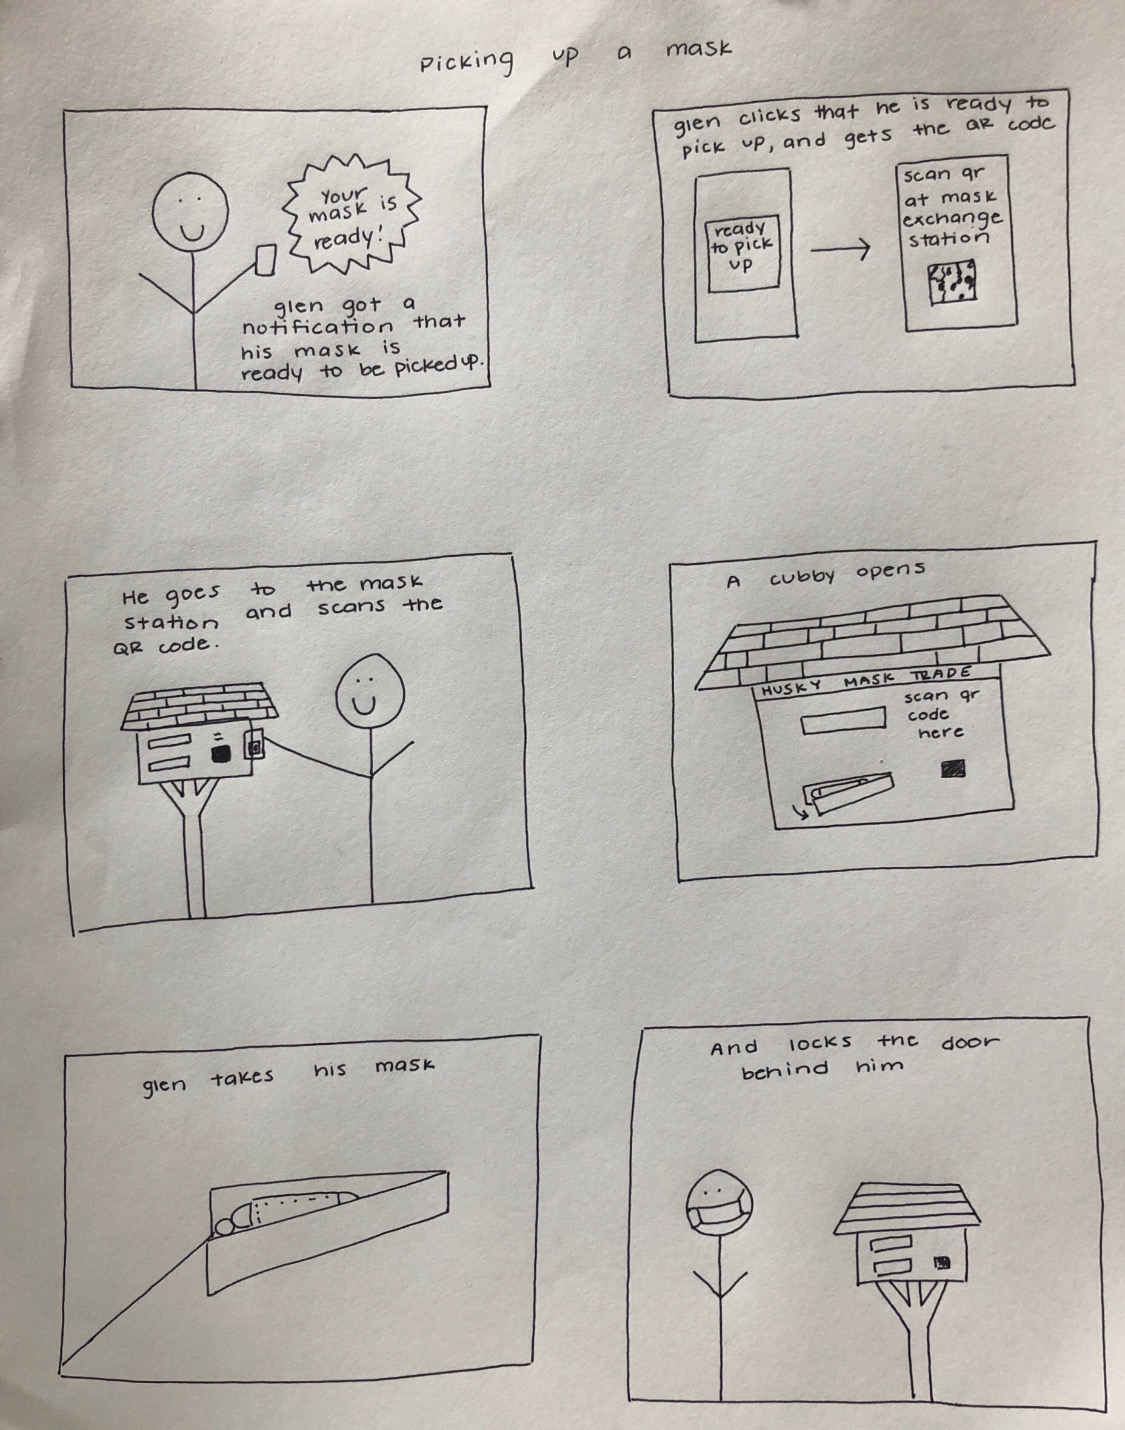 Picking up a mask
Your
mask is
ready!
glen got a
notification that
his mask is
ready to be picked up.
glen clicks that he is ready to
pick up, and gets the QR code
ready
to pick
up
scan qr
at mask
exchange
station
He goes to the mask
station and scans the
QR code.
A cubby opens
HUSKY MASK TRADE
scan qr
code
here
glen takes his mask
And locks the door
behind him